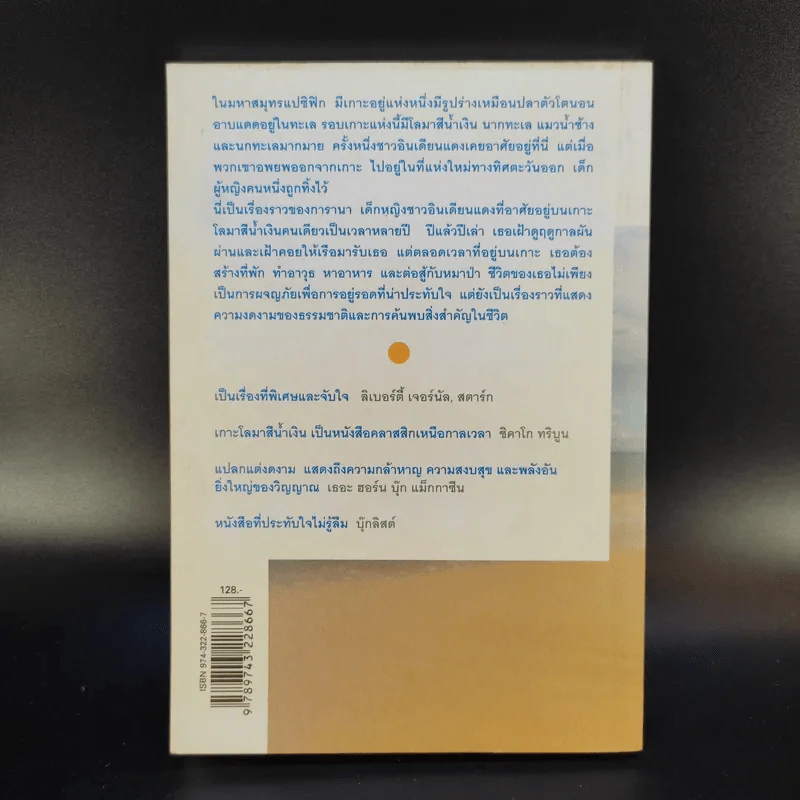 ในมหาสมุทรแปซิฟิก มีเกาะอยู่แห่งหนึ่งมีรูปร่างเหมือนปลาตัวโตนอน
อาบแดดอยู่ในทะเล รอบเกาะแห่งนี้มีโลมาสีน้ำเงิน นากทะเล แมวน้ำช้าง
และนกทะเลมากมาย ครั้งหนึ่งชาวอินเดียนแดงเคยอาศัยอยู่ที่นี่ แต่เมื่อ
พวกเขาอพยพออกจากเกาะ ไปอยู่ในที่แห่งใหม่ทางทิศตะวันออก เด็ก
ผู้หญิงคนหนึ่งถูกทิ้งไว้
นี่เป็นเรื่องราวของการานา เด็กหญิงชาวอินเดียนแดงที่อาศัยอยู่บนเกาะ
โลมาสีน้ำเงินคนเดียวเป็นเวลาหลายปี ปีแล้วปีเล่า เธอเฝ้าดูฤดูกาลผัน
ผ่านและเฝ้าคอยให้เรือมารับเธอ แต่ตลอดเวลาที่อยู่บนเกาะ เธอต้อง
สร้างที่พัก ทำอาวุธ หาอาหาร และต่อสู้กับหมาป่า ชีวิตของเธอไม่เพียง
เป็นการผจญภัยเพื่อการอยู่รอดที่น่าประทับใจ แต่ยังเป็นเรื่องราวที่แสดง
ความงดงามของธรรมชาติและการค้นพบสิ่งสำคัญในชีวิต
เป็นเรื่องที่พิเศษและจับใจ ลิเบอร์ตี้ เจอร์นัล, สตาร์ก
เกาะโลมาสีน้ำเงิน เป็นหนังสือคลาสสิกเหนือกาลเวลา ชิคาโก ทริบูน
แปลกแต่งดงาม แสดงถึงความกล้าหาญ ความสงบสุข และพลังอัน
ยิ่งใหญ่ของวิญญาณ เธอะ ฮอร์น บุ๊ก แม็กกาซีน
หนังสือที่ประทับใจไม่รู้ลืม บุ๊กลิสต์
128.-
ISBN 974-322-866-7
9 789743 228667